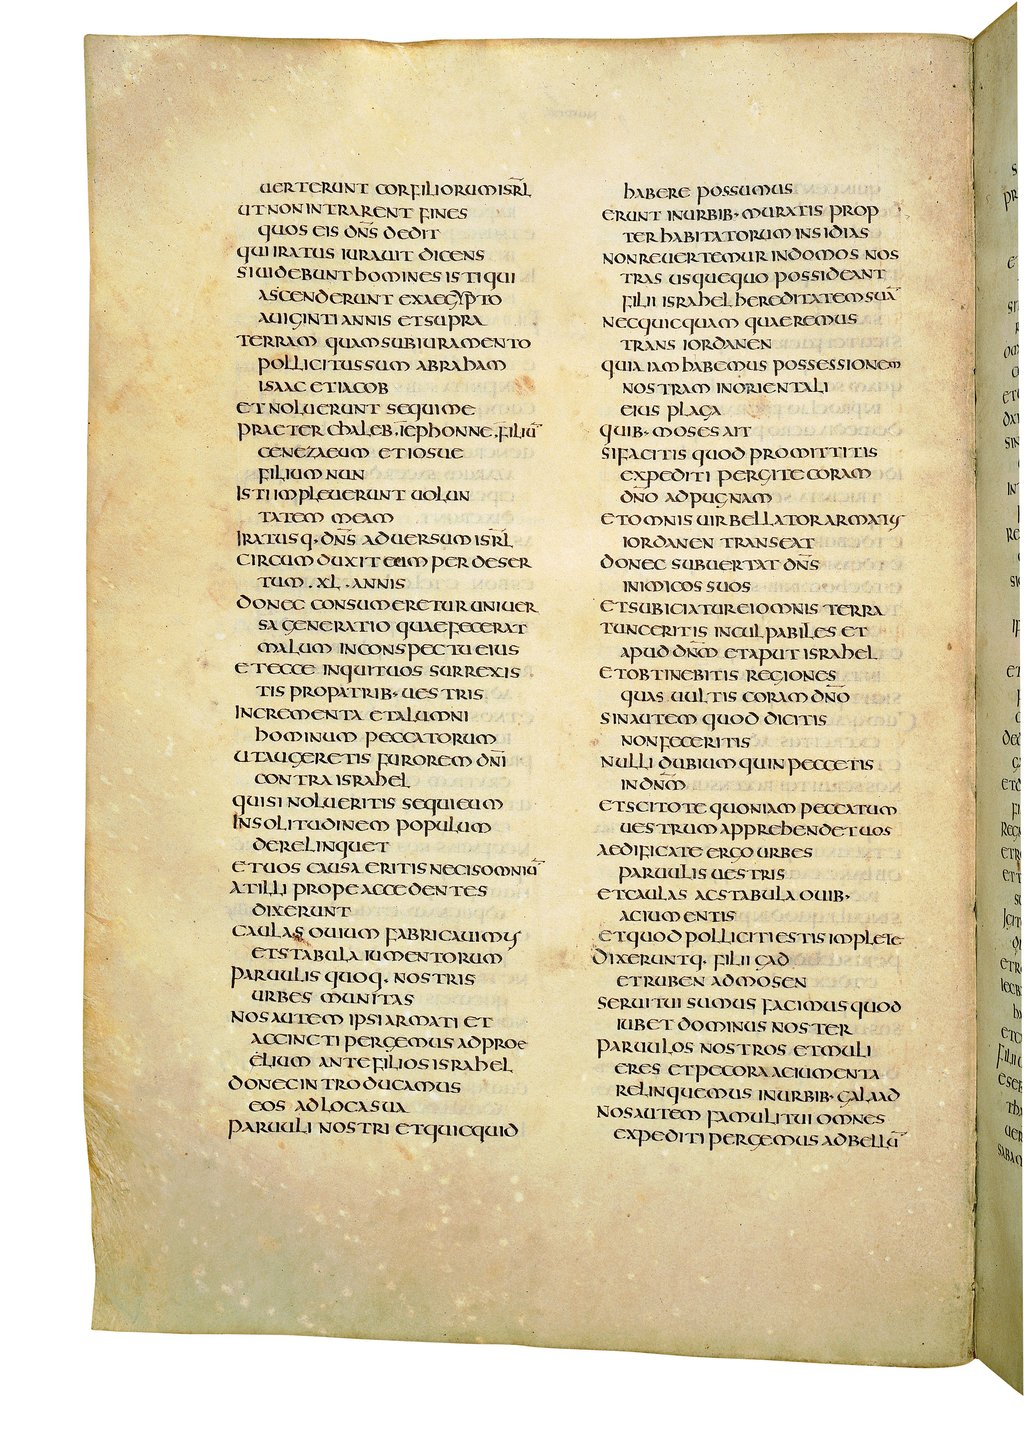 uerterunt cor filiorum isrl̄
ut non intrarent fines
quos eis dn̄s dedit
qui iratus iurauit dicens
si uidebunt homines isti qui
ascenderunt ex aegypto
a uiginti annis et supra
terram quam sub iuramento
pollicitus sum abraham
isaac et iacob
et noluerunt sequi me
praeter chaleb·iephonne·filiū
cenezaeum et iosue
filium nun
isti impleuerunt uolun
tatem meam
iratusq· dn̄s aduersum isrl̄
circumduxit eum per deser
tum ·xl· annis
donec consumeretur uniuer
sa generatio quae fecerat
malum in conspectu eius
et ecce inquit uos surrexis
tis pro patrib· uestris
incrementa et alumni
hominum peccatorum
ut augeretis furorem dn̄i
contra israhel
qui si nolueritis sequi eum
in solitudinem populum
derelinquet
et uos causa eritis necis omniū
at illi prope accedentes
dixerunt
caulas ouium fabricauimus
et stabula iumentorum
paruulis quoq· nostris
urbes munitas
nos autem ipsi armati et
accincti pergemus ad proe
elium ante filios israhel
donec introducamus
eos ad loca sua
paruuli nostri et quicquid
habere possumus
erunt in urbib· muratis prop
ter habitatorum insidias
non reuertemur in domos nos
tras usque quo possideant
filii israhel hereditatem suā
nec quicquam quaeremus
trans iordanen
quia iam habemus possessionem
nostram in orientali
eius plaga
quib· moses ait
si facitis quod promittitis
expediti pergite coram
dn̄o ad pugnam
et omnis uir bellator armatus
iordanen transeat
donec subuertat dn̄s
inimicos suos
et subiciatur ei omnis terra
tunc eritis inculpabiles et
apud dn̄m et aput israhel
et obtinebitis regiones
quas uultis coram dn̄o
sin autem quod dicitis
non feceritis
nulli dubium quin peccetis
in dn̄m
et scitote quoniam peccatum
uestrum apprehendet uos
aedificate ergo urbes
paruulis uestris
et caulas ac stabula ouib·
ac iumentis
et quod polliciti estis implete
dixeruntq· filii gad
et ruben ad mosen
serui tui sumus facimus quod
iubet dominus noster
paruulos nostros et muli
eres et pecora ac iumenta
relinquemus in urbib· galaad
nos autem famuli tui omnes
expediti pergemus ad bellū